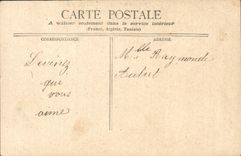 CARTE POSTALE
A utiliser seulement dans le service intérieur
(France, Algérie, Tunisie)
CORRESPONDANCE
ADRESSE
Devinez
qui
vous
aime
Mlle Raymonde
Aubert